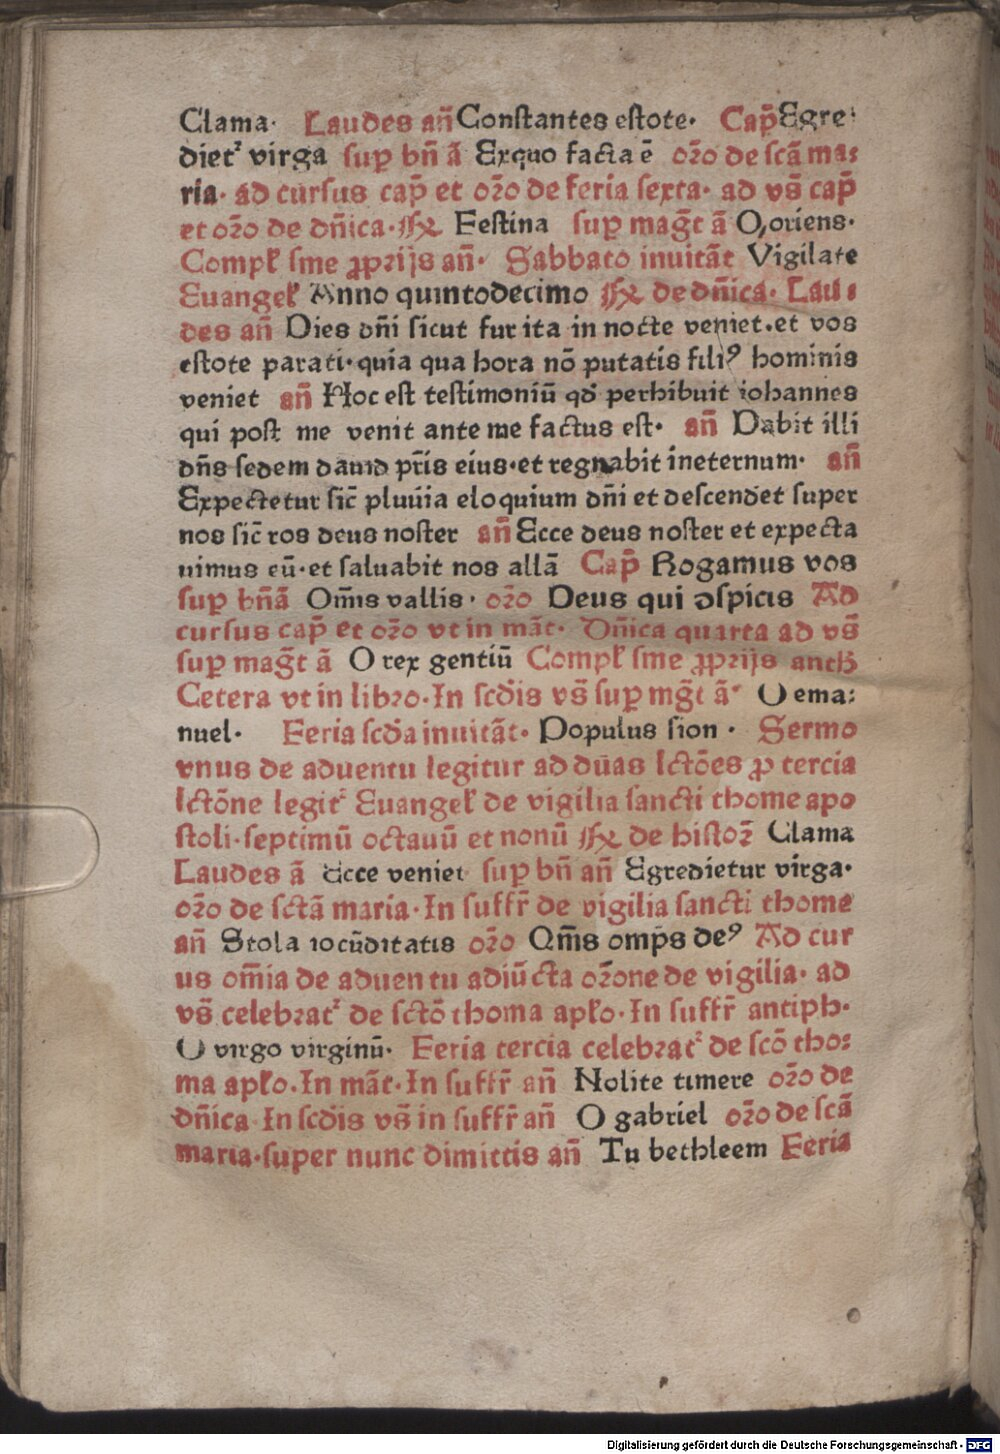 Clama· Laudes an̄ Constantes estote· Cap̄ Egre⸗
dietᷣ virga sup̱ bn̄ ā Exquo facta ē or̄o de scā ma⸗
ria· ad cursus cap̄ et or̄o de feria sexta· ad vs̄ cap̄
et or̄o de dn̄ica· ℟ Festina sup̱ maḡt ā O, oriens·
Compl̵ sme ꝓprijs an̄· Sabbato inuitāt Vigilate
Euangel̵ Anno quintodecimo ℟ de dn̄ica· Lau⸗
des an̄ Dies dn̄i sicut fur ita in nocte veniet·et vos
estote parati·quia qua hora nō putatis filiꝰ hominis
veniet an̄ Hoc est testimoniū qd̄ perhibuit iohannes
qui post me venit ante me factus est· an̄ Dabit illi
dn̄s sedem dauid pr̄is eius·et regnabit ineternum· an̄
Expectetur sic̄ pluuia eloquium dn̄i et descendet super
nos sic̄ ros deus noster an̄ Ecce deus noster et expecta
uimus eū·et saluabit nos allā Cap̄ Rogamus vos
sup̱ bn̄ ā Om̄is vallis· or̄o Deus qui ↄspicis Ad
cursus cap̄ et or̄o vt in māt· Dn̄ica quarta ad vs̄
sup̱ maḡt ā O rex gentiū Compl̵ sme ꝓprijs antħ
Cetera vt in libro·In scd̄is vs̄ sup̱ mḡt ā O ema⸗
nuel· Feria scd̄a inuitāt· Populus sion· Sermo
vnus de aduentu legitur ad duas lctōes ꝓ tercia
lctōne legitᷣ Euangel̵ de vigilia sancti thome apo
stoli·septimū octauū et nonū ℟ de histor̄ Clama
Laudes ā Ecce veniet sup̱ bn̄ an̄ Egredietur virga·
or̄o de sctā maria·In suffr̄ de vigilia sancti thome
an̄ Stola iocūditatis or̄o Qm̄s omp̄s deꝰ Ad cur
us om̄ia de aduentu adiūcta or̄one de vigilia· ad
vs̄ celebratᷣ de sctō thoma apl̵o·In suffr̄ antiph·
O virgo virginū· Feria tercia celebratᷣ de scō tho⸗
ma apl̵o·In māt·In suffr̄ an̄ Nolite timere or̄o de
dn̄ica·In scd̄is vs̄ in suffr̄ an̄ O gabriel or̄o de scā
maria·super nunc dimittis an̄ Tu bethleem Feria
Digitalisierung gefördert durch die Deutsche Forschungsgemeinschaft - DFG